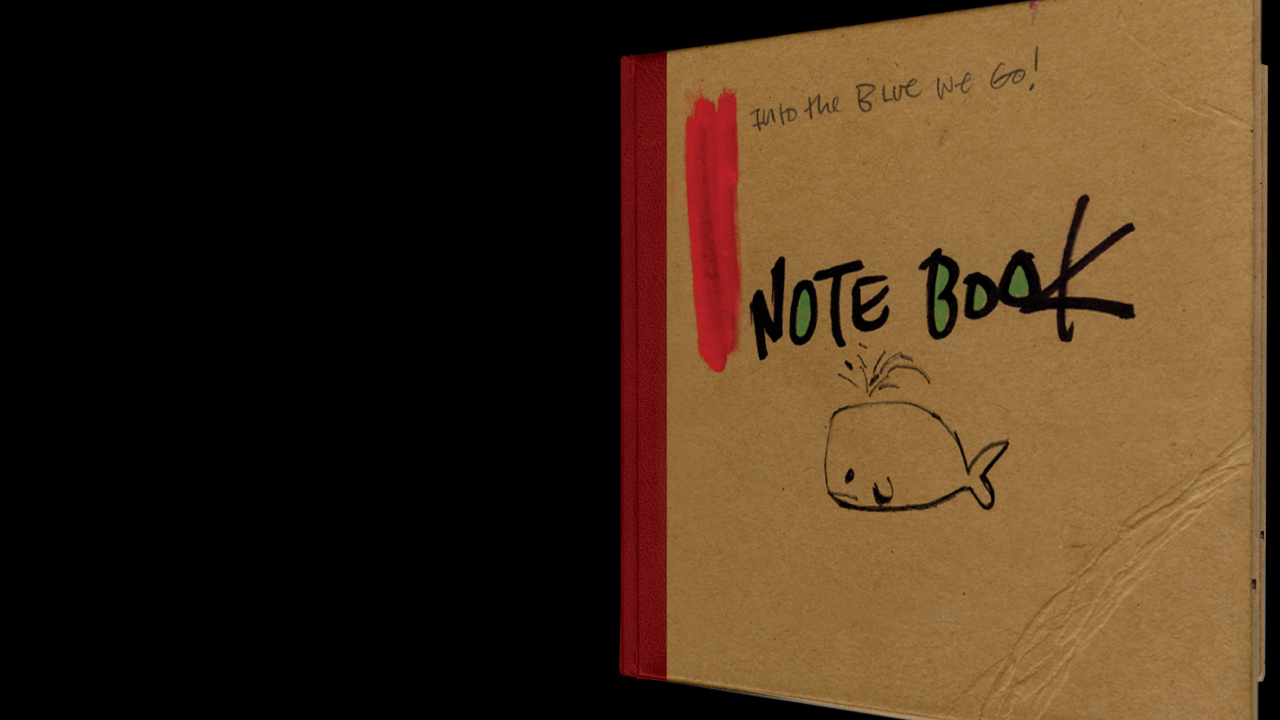 Into the BLUE WE GO!
NOTE BOOK